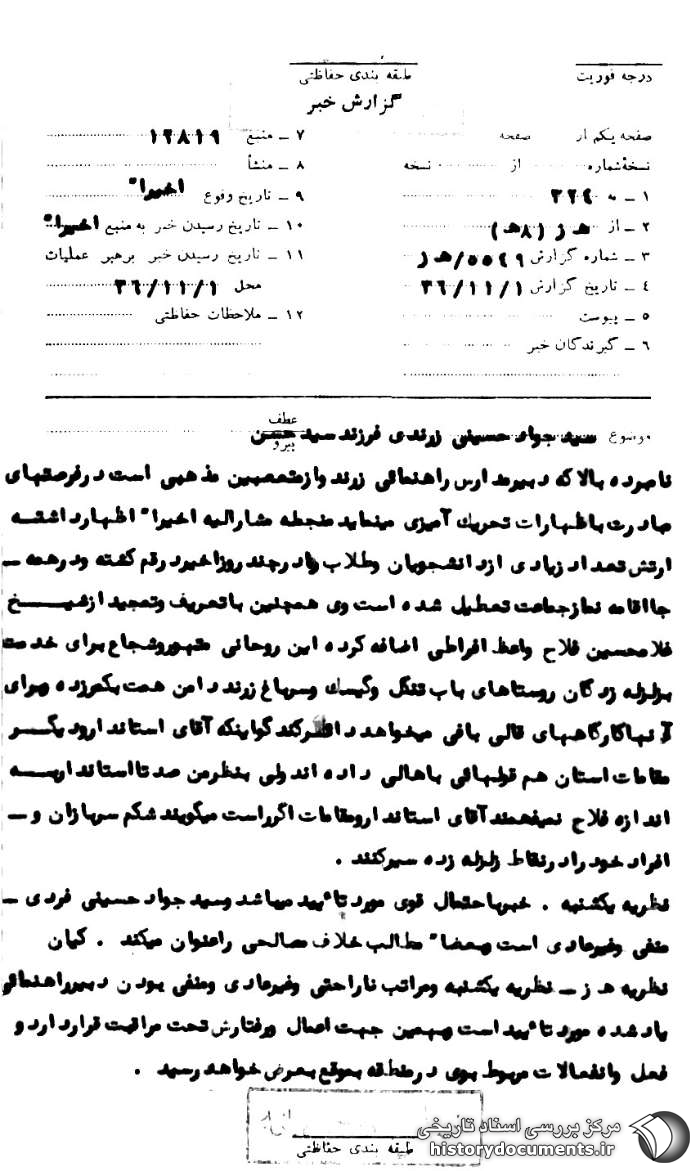 درجه فوریت
طبقه بندی حفاظتی
گزارش خبر
صفحه یکم از صفحه
نسخهٔ شماره از نسخه
۱ ـ به ۳۲۴
۲ ـ از هـ ز (۸هـ)
۳ ـ شماره گزارش ۵۵۴۹/هـ ز
۴ ـ تاریخ گزارش ۳۶/۱۱/۱
۵ ـ پیوست
۶ ـ گیرندگان خبر
۷ ـ منبع ۱۲۸۱۹
۸ ـ منشأ
۹ ـ تاریخ وقوع اخیرا"
۱۰ ـ تاریخ رسیدن خبر به منبع اخیرا"
۱۱ ـ تاریخ رسیدن خبر برهبر عملیات
محل ۳۶/۱۱/۱
۱۲ ـ ملاحظات حفاظتی
موضوع سید جواد حسینی زرندی فرزند سید حسن
عطف
پیرو
نامبرده بالا که دبیر مدارس راهنمائی زرند و از متعصبین مذهبی است در فرصتهای
مبادرت باظهارات تحریک آمیزی مینماید منجمله مشارالیه اخیرا" اظهار داشتـه
ارتش تعداد زیادی از دانشجویان وطلاب را در چند روز اخیر در قم کشته و در همه ـ
جا اقامه نماز جماعت تعطیل شده است وی همچنین با تعریف وتمجید از شیـــخ
غلامحسین فلاح واعظ افراطی اضافه کرده این روحانی متهور وشجاع برای خدمت
بزلزله زدگان روستاهای باب تنگل وگیسک وسرباغ زرند دامن همت بکمر زده وبرای
آنها کارگاههای قالی بافی میخواهد دائر کند گو اینکه آقای استاندار و دیگـــر
مقامات استان هم قولهائی باهالی داده اند ولی بنظر من صد تا استانداربـــه
اندازه فلاح نمیفهمند آقای استاندار و مقامات اگر راست میگویند شکم سربازان و ـ
افراد خود را در نقاط زلزله زده سیر کنند .
نظریه یکشنبه . خبر با احتمال قوی مورد تأیید میباشد وسید جواد حسینی فردی ـ
منفی وغیرعادی است وبعضا" مطالب خلاف مصالحی را عنوان میکند . کیان
نظریه هـ ز ـ نظریه یکشنبه ومراتب ناراحتی وغیرعادی ومنفی بودن دبیر راهنمائی
یاد شده مورد تأیید است وبهمین جهت اعمال ورفتارش تحت مراقبت قرار دارد و
فعل وانفعالات مربوط بوی در منطقه بموقع بعرض خواهد رسید .
طبقه بندی حفاظتی
مرکز بررسی اسناد تاریخی
historydocuments.ir